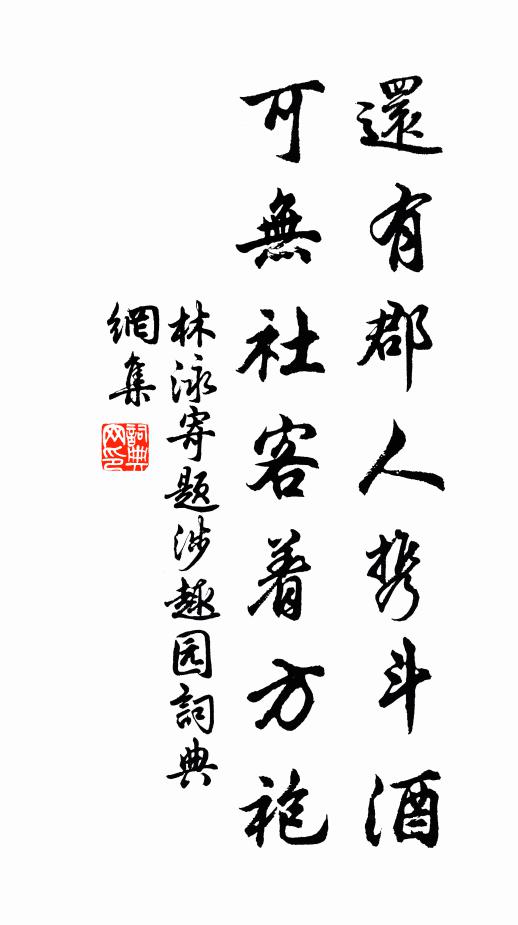 還有郡人携斗酒
可無社客着方袍
林泳寄題涉趣园詞典
網集
詞典網印